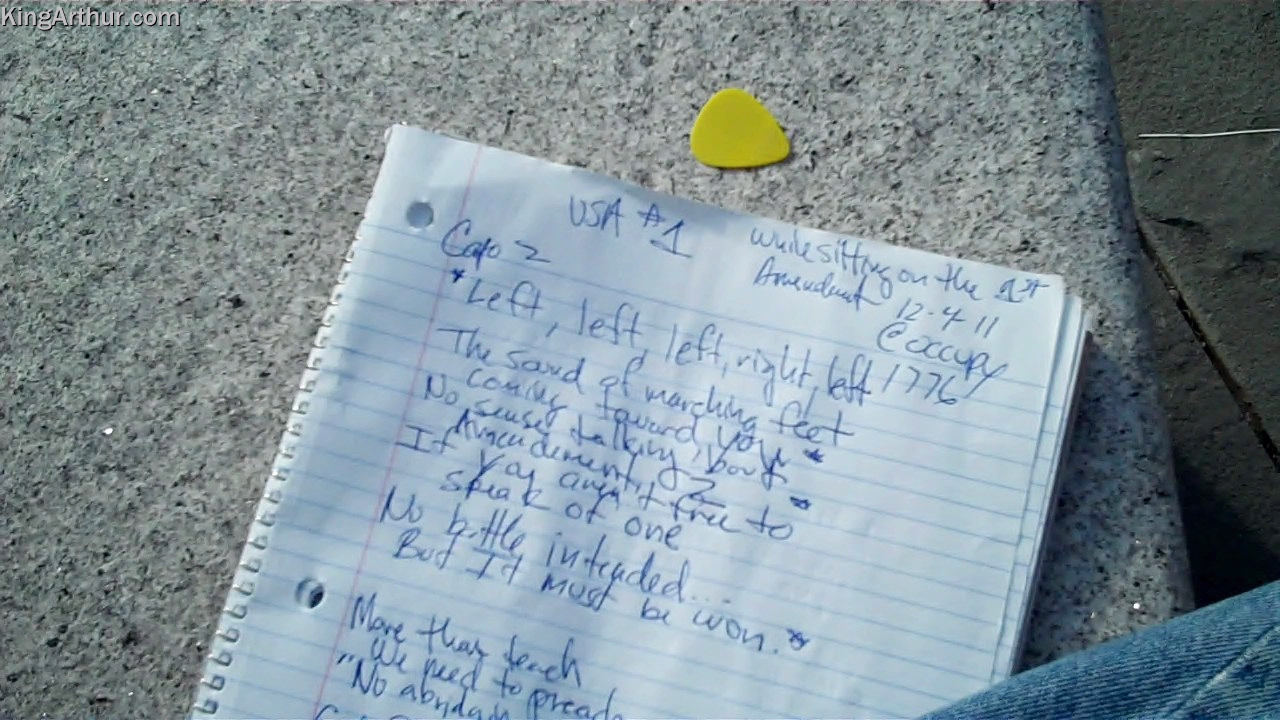 KingArthur.com
USA #1
while sitting on the 1st
Amendment
12-4-11
@occupy
1776
Capo 2
*Left, left, left, right, left
The sound of marching feet
coming toward you *
No sense talking 'bout
Amendment 2 *
If you ain't free to
speak of one
No battle intended...
But It must be won. *
More than teach
"We need to preach
"No abridgin